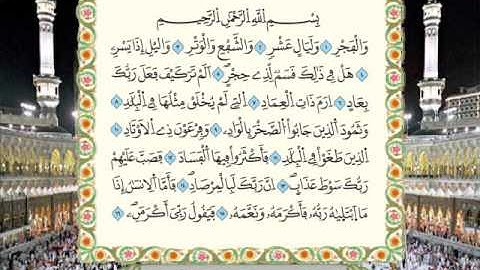 بِسْمِ اللَّهِ الرَّحْمَٰنِ الرَّحِيمِ
وَالْفَجْرِ ١ وَلَيَالٍ عَشْرٍ ٢ وَالشَّفْعِ وَالْوَتْرِ ٣ وَاليْلِ إِذَا يَسْرِۦ
٤ هَلْ فِے ذَٰلِكَ قَسَمٌ لِّذِے حِجْرٍ ٥ اَلَمْ تَرَ كَيْفَ فَعَلَ رَبُّكَ
بِعَادٍ ٦ اِرَمَ ذَاتِ الْعِمَادِ ٧ اِلتِے لَمْ يُخْلَقْ مِثْلُهَا فِے الْبِلَٰدِ ٨
وَثَمُودَ الَذِينَ جَابُواْ الصَّخْرَ بِالْوَادِۦ ٩ وَفِرْعَوْنَ ذِے الَاوْتَادِ ١٠
الذِينَ طَغَوْاْ فِے الْبِلَٰدِ ١١ فَأَكْثَرُواْ فِيهَا اَلْفَسَادَ ١٢ فَصَبَّ عَلَيْهِمْ
رَبُّكَ سَوْطَ عَذَابٍ ١٣ اِنَّ رَبَّكَ لَبِالْمِرْصَادِ ١٤ فَأَمَّا اَلِانسَٰنُ إِذَا
مَا اَبْتَلَيٰهُ رَبُّهُۥ فَأَكْرَمَهُۥ وَنَعَّمَهُۥ ١٥ فَيَقُولُ رَبِّيَ أَكْرَمَنِۦ ١٦